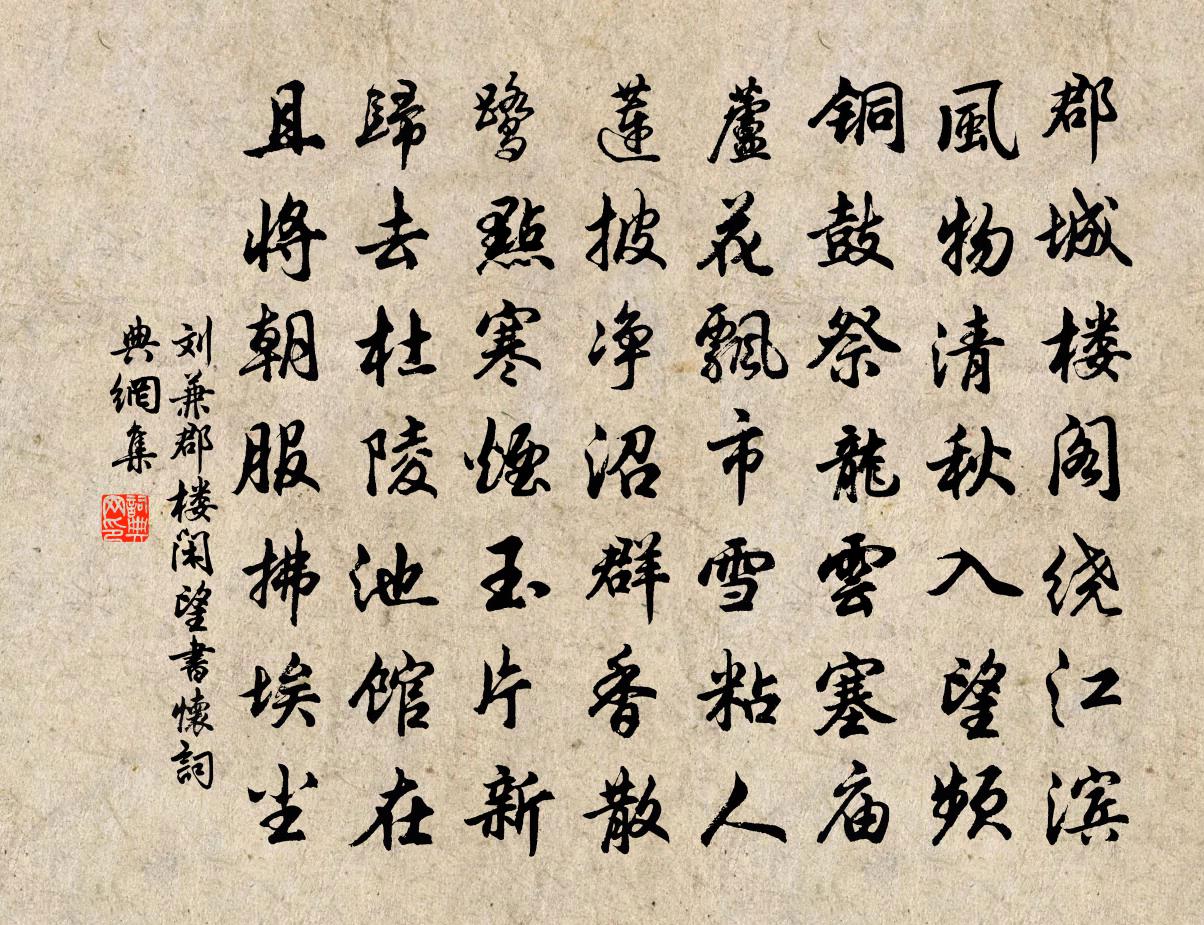 郡城楼阁绕江滨
風物清秋入望频
铜鼓祭龍雲塞庙
蘆花飄市雪粘人
蓮披净沼群香散
鹭點寒煙玉片新
歸去杜陵池馆在
且将朝服拂埃尘
刘兼郡楼闲望書懷詞
典網集
詞典
网印